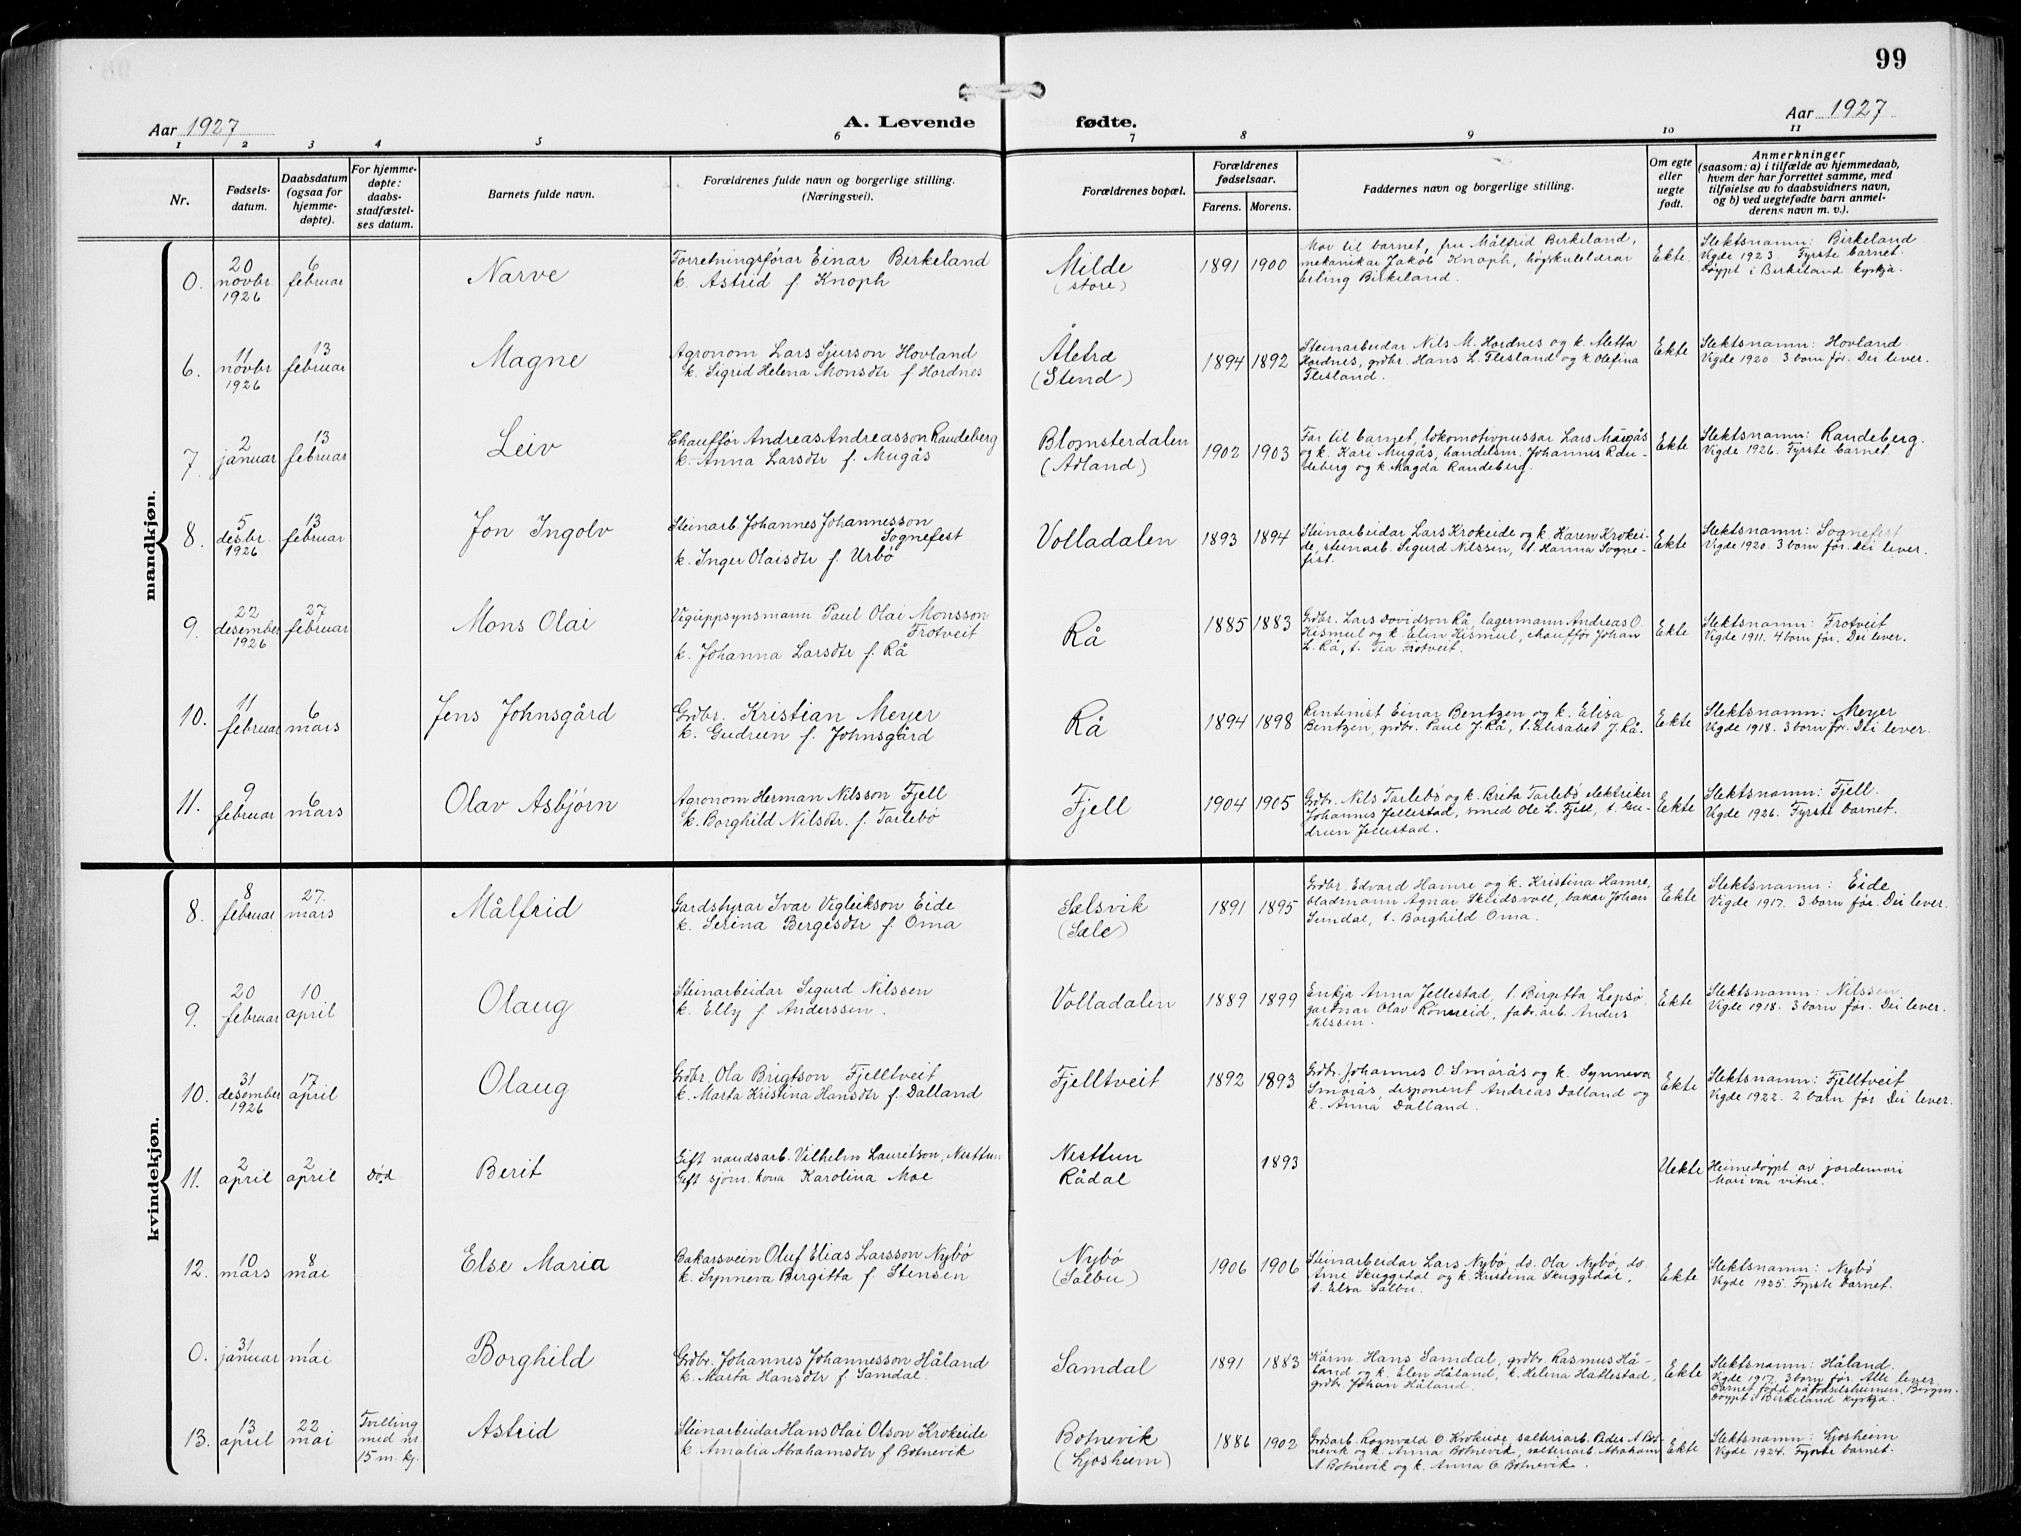 99
Aar 1927
A. Levende fødte.
Aar 1927
1 2 3 4 5 6 7 8 9 10 11
Nr.
Fødsels-
datum.
Daabsdatum
(ogsaa for
hjemme-
døpte).
For hjemme-
døpte:
daabs-
stadfæstel-
ses datum.
Barnets fulde navn.
Forældrenes fulde navn og borgerlige stilling.
(Næringsvei).
Forældrenes bopæl.
Forældrenes
fødselsaar.
Farens. Morens.
Faddernes navn og borgerlige stilling.
Om egte
eller
uegte
født.
Anmerkninger
(saasom: a) i tilfælde av hjemmedaab,
hvem der har forrettet samme, med
tilføielse av to daabsvidners navn,
og b) ved uegtefødte barn anmel-
derens navn m. v.).
mandkjøn.
0.
20
novbr
1926
6
februar
Narve
Forretningsførar Einar Birkeland
k. Astrid f. Knoph
Milde
(store)
1891 1900
Mor til barnet, fru Målfrid Birkeland,
mekanikar Jakob Knoph, høgskulelærar
Erling Birkeland.
Ekte
Slektsnamn: Birkeland
Vigde 1923. Fyrste barnet.
Døypt i Birkeland kyrkja.
6.
11
novbr
1926
13
februar
Magne
Agronom Lars Sjurson Hovland
k. Sigrid Helena Monsdtr f. Hordnes
Åletræ
(Stend)
1894 1892
Steinarbeidar Nils M. Hordnes og k. Metta
Hordnes, grdbr. Hans L. Flesland og k. Olefina
Flesland.
Ekte
Slektsnamn: Hovland
Vigde 1920. 3 born før. Dei lever.
7.
2
januar
13
februar
Leiv
Chauffør Andreas Andreasson Randeberg
k. Anna Larsdtr f. Mugås
Blomsterdalen
(Ådland)
1902 1903
Far til barnet, lokomotivpussar Lars Mugås
og k. Kari Mugås, handelsm. Johannes Ran-
deberg og k. Magda Randeberg.
Ekte
Slektsnamn: Randeberg.
Vigde 1926. Fyrste barnet.
8.
5
desbr.
1926
13
februar
Jon Ingolv
Steinarb. Johannes Johannesson
Sognefest
k. Inger Olaisdtr f. Urbø
Volladalen
1893 1894
Steinarbeidar Lars Krokeide og k. Karen Krokei-
de, steinarb. Sigurd Nilssen, t. Hanna Sogne-
fest.
Ekte
Slektsnamn: Sognefest
Vigde 1920. 3 born før. Dei lever.
9.
22
desember
1926
27
februar
Mons Olai
Veguppsynsmann Paul Olai Monsson
Frotveit
k. Johanna Larsdtr f. Rå
Rå
1885 1883
Grdbr. Lars Davidson Rå, lagermann Andreas O.
Kismul og k. Elen Kismul, chauffør Johan
L. Rå, t. Tea Frotveit.
Ekte
Slektsnamn: Frotveit
Vigde 1911. 4 born før. Dei lever.
10.
11
februar
6
mars
Jens Johnsgård
Grdbr. Kristian Meyer
k. Gudrun f. Johnsgård
Rå
1894 1898
Rentenist Einar Bentzen og k. Elisa
Bentzen, grdbr. Paul J. Rå, t. Elisabet J. Rå.
Ekte
Slektsnamn: Meyer
Vigde 1918. 3 born før. Dei lever.
11.
9
februar
6
mars
Olav Asbjørn
Agronom Herman Nilsson Fjell
k. Borghild Nilsdtr. f. Tarlebø
Fjell
1904 1905
Grdbr. Nils Tarlebø og k. Brita Tarlebø elektriker
Johannes Jellestad, smed Ole L. Fjell, t. Gu-
drun Jellestad.
Ekte
Slektsnamn: Fjell.
Vigde 1926. Fyrste barnet.
kvindekjøn.
8.
8
februar
27.
mars
Målfrid
Gardstyrar Ivar Vigleikson Eide
k. Serina Bergesdtr f. Oma
Sælsvik
(Sæle)
1891 1895
Grdbr. Edvard Hamre og k. Kristina Hamre,
bladmann Agnar Skeidsvoll, bakar Johan
Sundal, t. Borghild Oma.
Ekte
Slektsnamn: Eide
Vigde 1917. 3 born før. Dei lever.
9.
20
februar
10
april
Olaug
Steinarbeidar Sigurd Nilssen
k. Elly f. Anderssen.
Volladalen
1889 1899
Enkja Anna Jellestad, t. Birgitta Lepsø
gartnar Olav Rønneid, fabr. arb. Anders
Nilssen.
Ekte
Slektsnamn: Nilssen
Vigde 1918. 3 born før. Dei lever.
10.
31
desember
1926
17
april
Olaug
Grdbr. Ola Brigtson Fjelltveit
k. Marta Kristina Hansdtr f. Dalland
Fjelltveit
1892 1893
Grdbr. Johannes O. Smørås og k. Synneva
Smørås, disponent Andreas Dalland og
k. Anna Dalland.
Ekte
Slektsnamn: Fjelltveit
Vigde 1922. 2 born før. Dei lever.
11.
2
april
2
april
død
Berit
Gift naudsarb. Vilhelm Lauritson, Nesttun
Gift sjøm. kona Karolina Moe
Nesttun
Rådal
1893
Uekte
Heimedøypt av jordemori
Mori var vitne.
12.
10
mars
8
mai
Else Maria
Bakarsvein Oluf Elias Larsson Nybø
k. Synneva Birgitta f. Stensen
Nybø
(Salbu)
1906 1906
Steinarbeidar Lars Nybø, do. Ola Nybø, do
Arne Skuggedal og k. Kristina Skuggedal,
t. Elsa Salbu.
Ekte
Slektsnamn: Nybø
Vigde 1925. Fyrste barnet.
0.
31
januar
1
mai
Borghild
Grdbr. Johannes Johannesson Håland
k. Marta Hansdtr f. Samdal.
Samdal
1891 1883
Kårm. Hans Samdal, grdbr. Rasmus Hå-
land og k. Elen Håland, k. Helena Hatlestad,
grdbr. Johan Håland.
Ekte
Slektsnamn: Håland.
Vigde 1917. 3 born før. Alle lever.
Barnet fødd på fødselsheimen, Bergen.
Døypt i Birkeland kyrkja.
13.
13
april
22
mai
Tvilling
med nr
15 m. kj.
Astrid
Steinarbeidar Hans Olai Olson Krokeide
k. Amalia Abrahamsdtr f. Botnevik
Botnevik
(Ljosheim)
1886 1902
Grdsarb. Rognvald O. Krokeide, salteriarb. Peder A Bot-
nevik og k. Anna Botnevik, salteriarb. Abraham
A Botnevik og k. Anna O Botnevik.
Ekte
Slektsnamn: Ljosheim
Vigde 1924. Fyrste barnet.